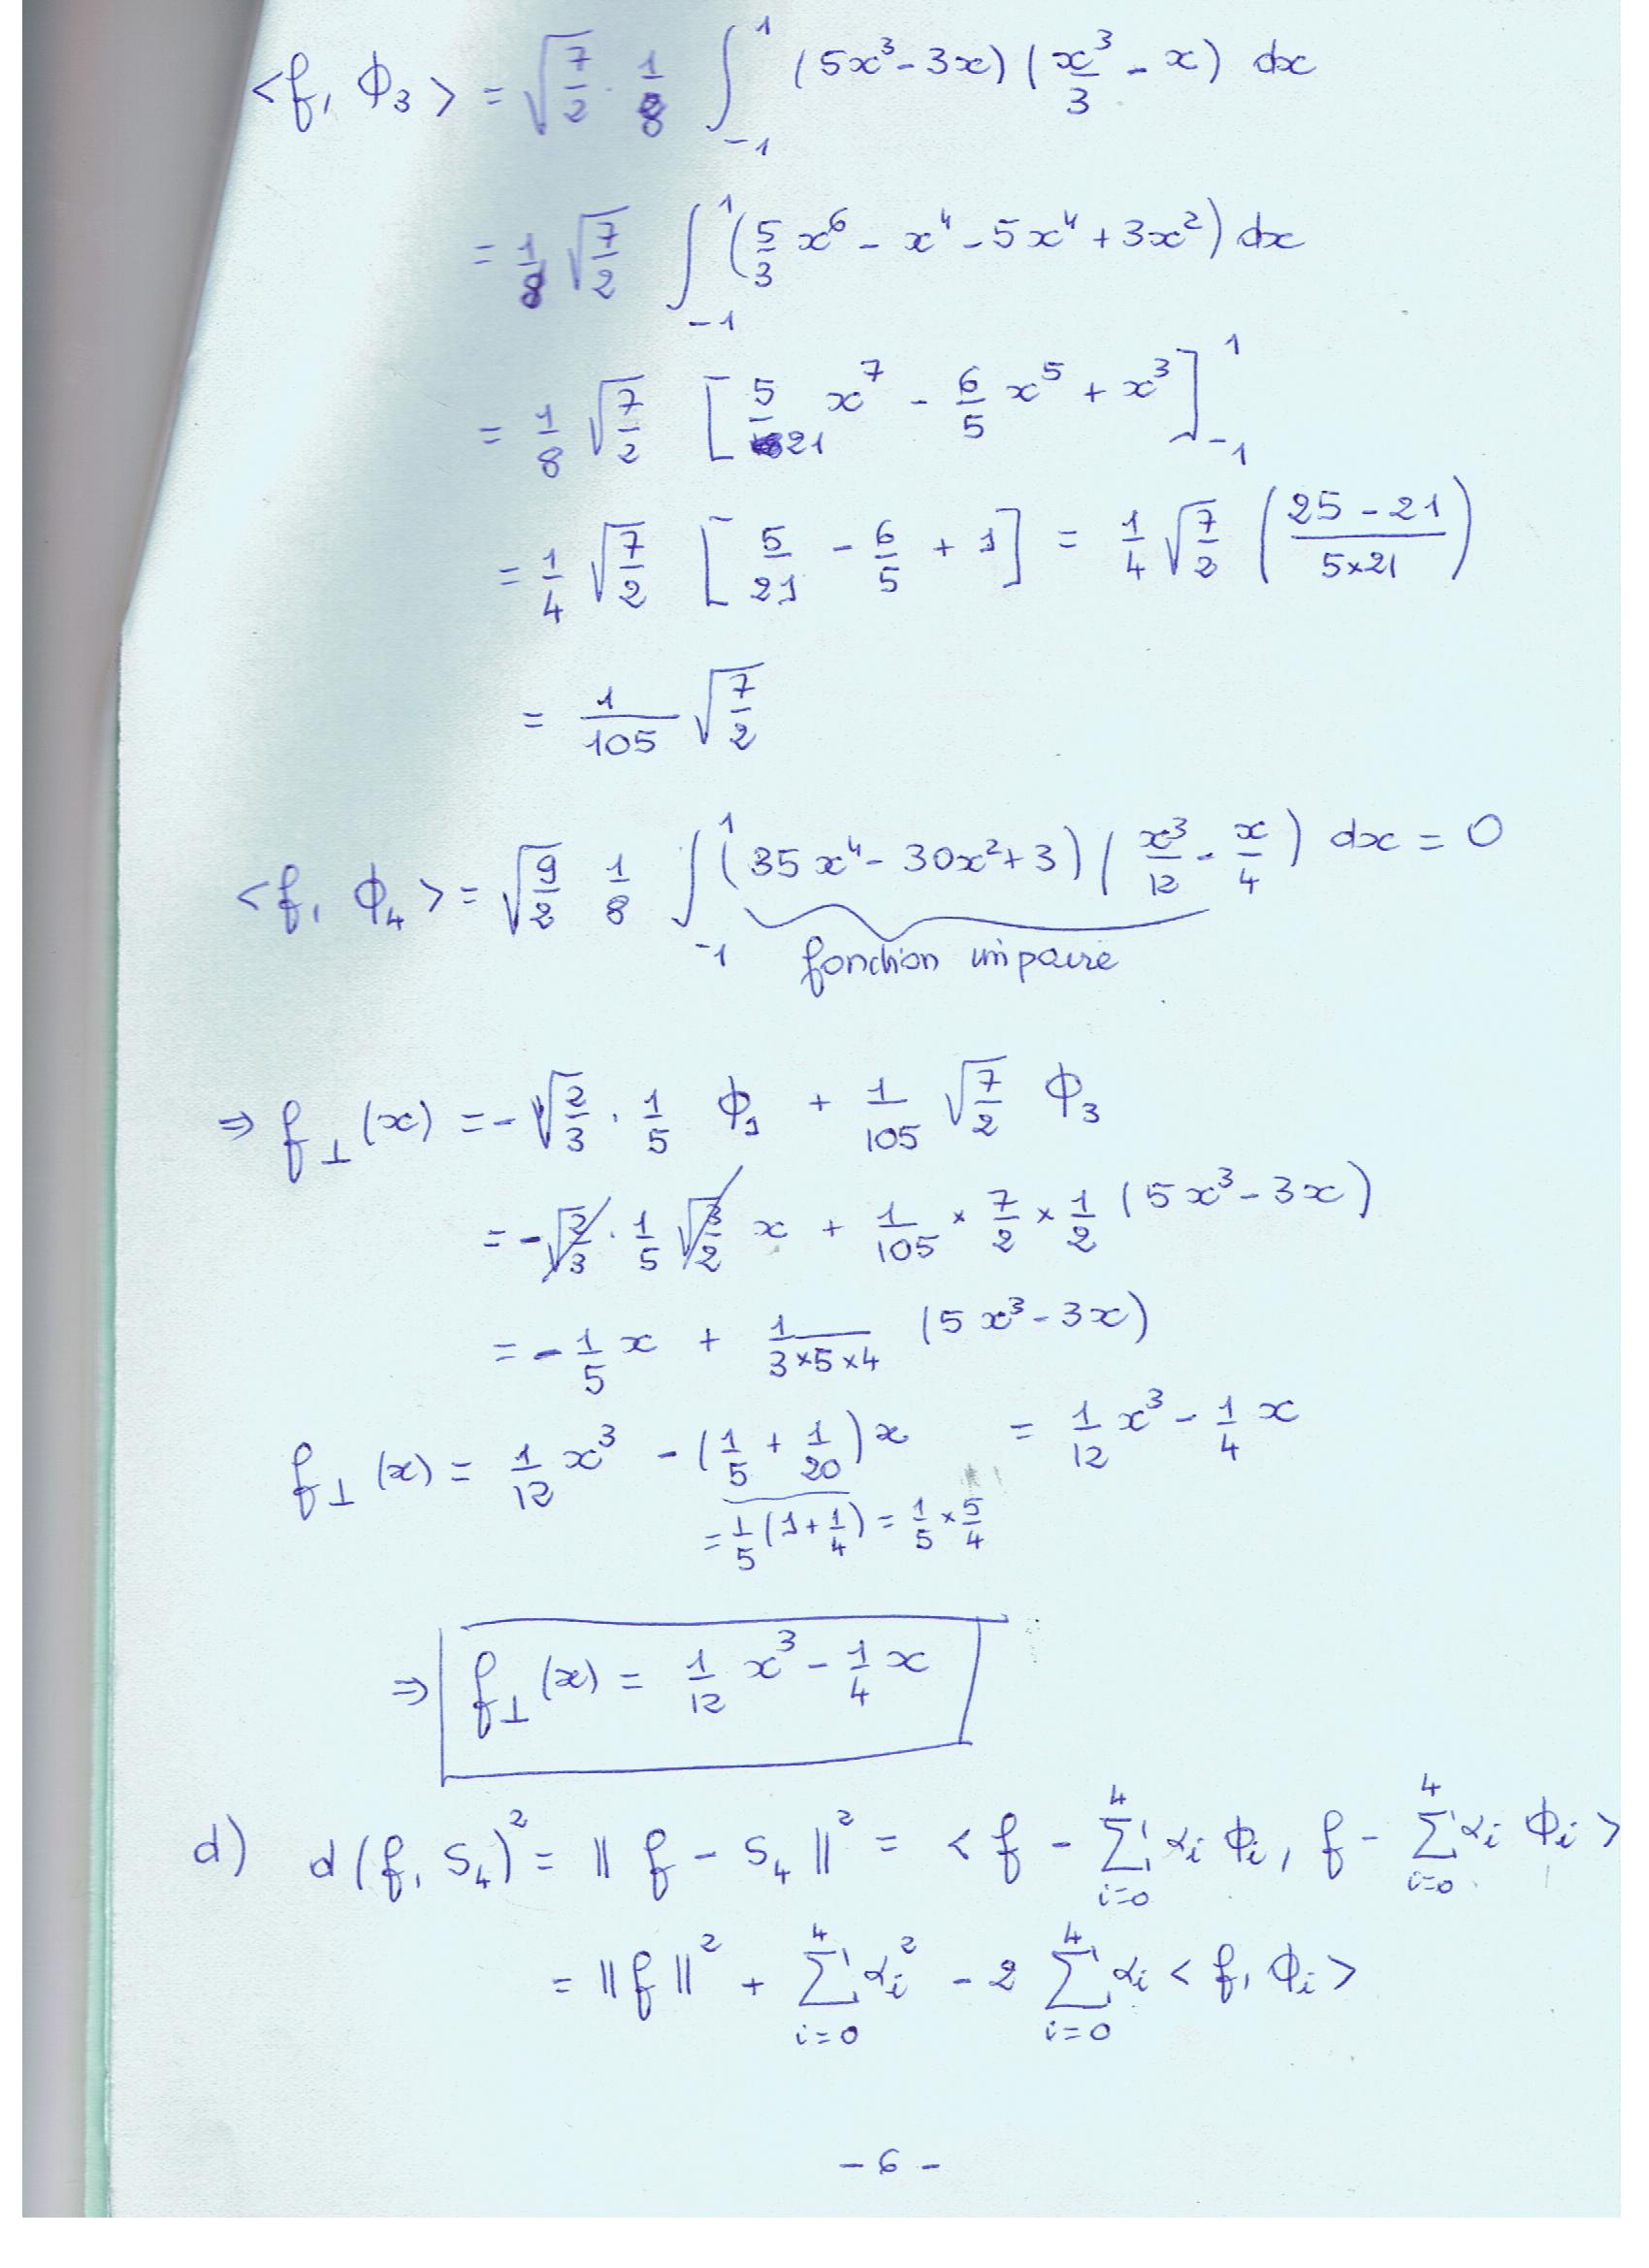 <f, ϕ₃> = √(7/2) · 1/8 ∫₋₁¹ (5x³ - 3x) (x³/3 - x) dx
= 1/8 √(7/2) ∫₋₁¹ (5/3 x⁶ - x⁴ - 5x⁴ + 3x²) dx
= 1/8 √(7/2) [5/21 x⁷ - 6/5 x⁵ + x³]₋₁¹
= 1/4 √(7/2) [5/21 - 6/5 + 1] = 1/4 √(7/2) ((25 - 21)/(5×21))
= 1/105 √(7/2)
<f, ϕ₄> = √(9/2) 1/8 ∫₋₁¹ (35x⁴ - 30x² + 3) (x³/12 - x/4) dx = 0
fonction impaire
⇒ f⊥(x) = -√(2/3) · 1/5 ϕ₁ + 1/105 √(7/2) ϕ₃
= -√(2/3) · 1/5 √(3/2) x + 1/105 × 7/2 × 1/2 (5x³ - 3x)
= -1/5 x + 1/(3×5×4) (5x³ - 3x)
f⊥(x) = 1/12 x³ - (1/5 + 1/20) x = 1/12 x³ - 1/4 x
= 1/5 (1 + 1/4) = 1/5 × 5/4
⇒ f⊥(x) = 1/12 x³ - 1/4 x
d) d(f, S₄)² = ‖f - S₄‖² = <f - ∑ᵢ₌₀⁴ αᵢ ϕᵢ, f - ∑ᵢ₌₀⁴ αᵢ ϕᵢ>
= ‖f‖² + ∑ᵢ₌₀⁴ αᵢ² - 2 ∑ᵢ₌₀⁴ αᵢ <f, ϕᵢ>
- 6 -